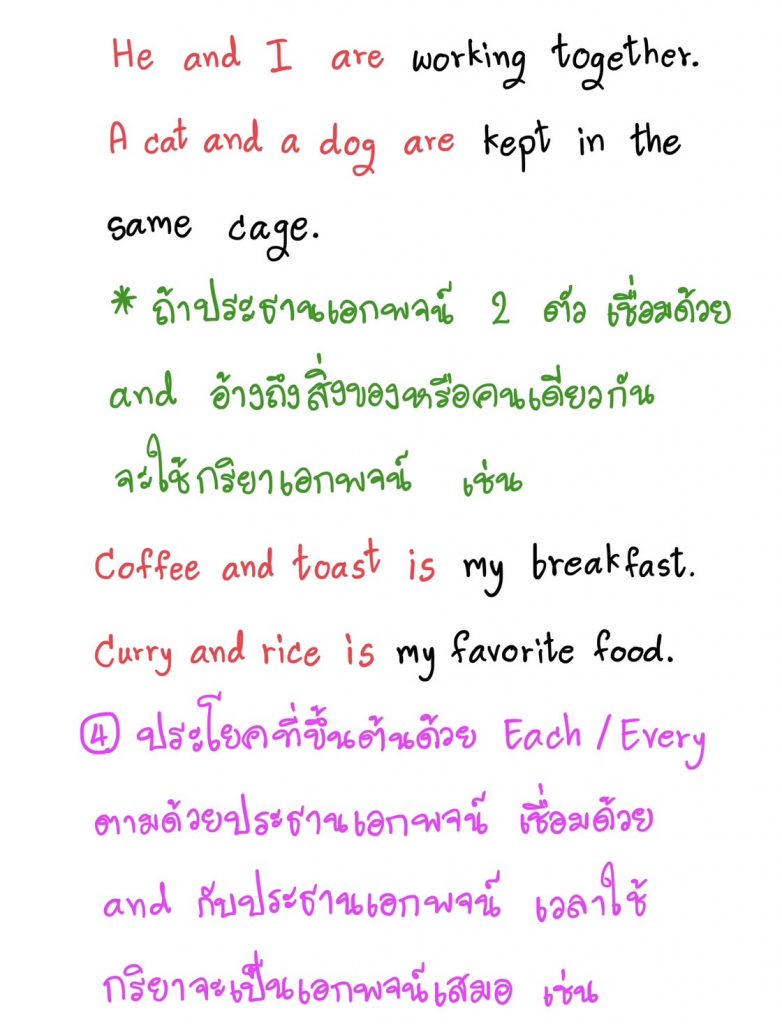 He and I are working together.
A cat and a dog are kept in the
same cage.
* ถ้าประธานเอกพจน์ 2 ตัว เชื่อมด้วย
and อ้างถึงสิ่งของหรือคนเดียวกัน
จะใช้กริยาเอกพจน์ เช่น
Coffee and toast is my breakfast.
Curry and rice is my favorite food.
④ ประโยคที่ขึ้นต้นด้วย Each / Every
ตามด้วยประธานเอกพจน์ เชื่อมด้วย
and กับประธานเอกพจน์ เวลาใช้
กริยาจะเป็นเอกพจน์เสมอ เช่น